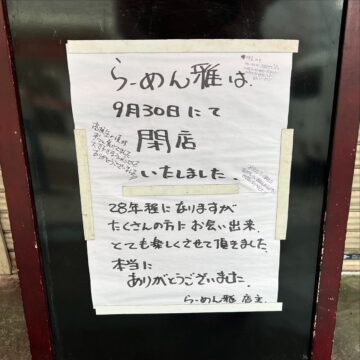 らーめん雅は
9月30日にて
閉店
いたしました.
28年程になりますが
たくさんの方にお会い出来.
とても楽しくさせて頂きました.
本当に
ありがとうございました.
らーめん雅 店主.